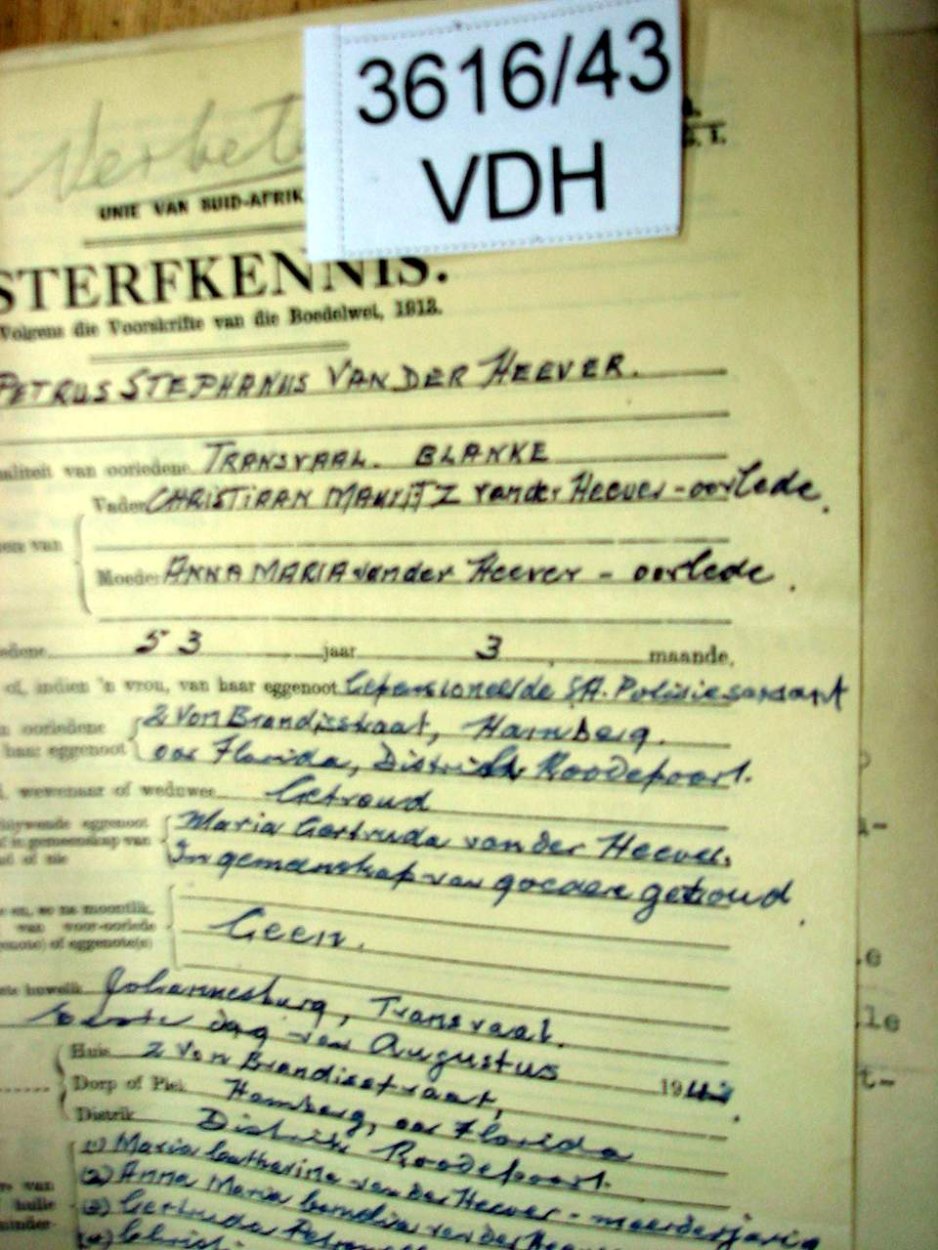 3616/43
VDH
UNIE VAN SUID-AFRIK
STERFKENNIS.
Volgens die Voorskrifte van die Boedelwet, 1913.
PETRUS STEPHANUS VAN DER HEEVER.
van oorledene TRANSVAAL. BLANKE
Vader CHRISTIAAN MAURITZ van der Heever - oorlede.
van
Moeder ANNA MARIA van der Heever - oorlede.
53 jaar 3 maande,
of, indien 'n vrou, van haar eggenoot Gepensioneerde S.A. Polisie sersant
oorledene 2 Von Brandisstraat, Hamberg.
haar eggenoot oor Florida, Distrik Roodepoort.
wewenaar of weduwee Getroud
eggenoot Maria Gertruda van der Heever.
in gemeenskap van
of nie In gemenskap van goedere getroud.
en, so na moontlik,
van voor-oorlede
of eggenote(s) Geen.
huwelik Johannesburg, Transvaal.
Eerste dag van Augustus 194
Huis 2 Von Brandisstraat,
Dorp of Plek Hamberg, oor Florida
Distrik Distrik Roodepoort.
(1) Maria Catharina van der Heever - meerderjarig
van (2) Anna Maria van der
hulle (3) Gertruda
minder- (4)